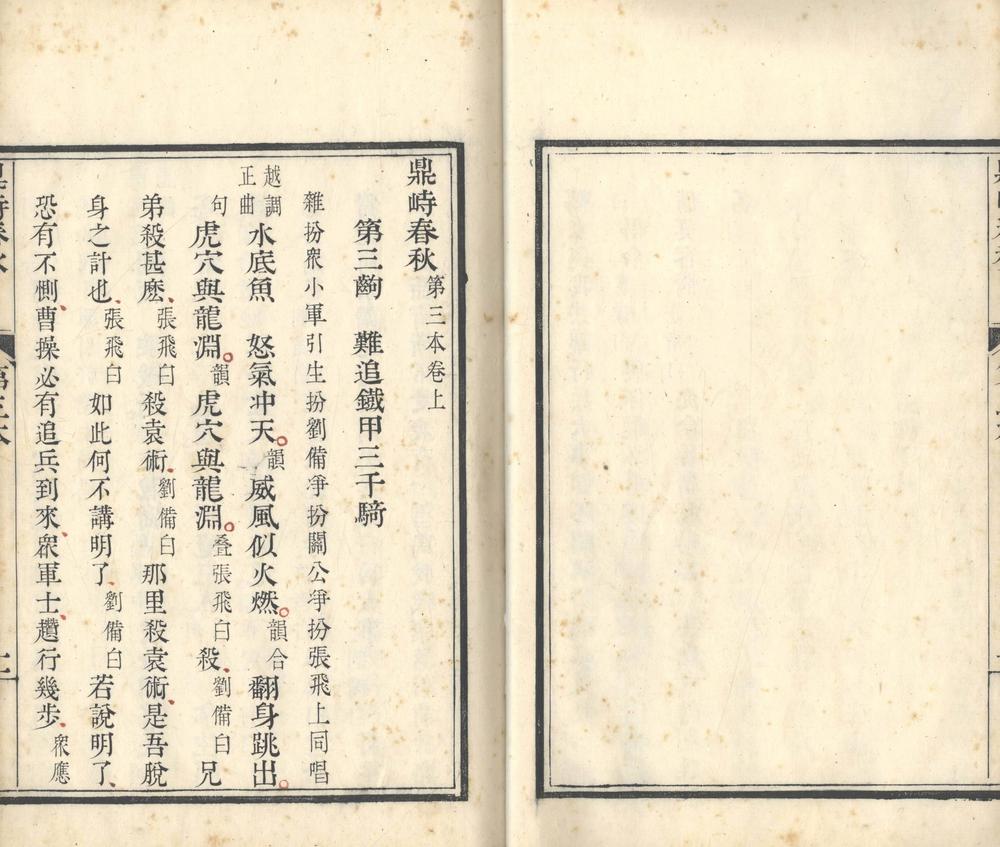 鼎峙春秋 第三本卷上
第三齣 難追鐵甲三千騎
雜扮衆小軍引生扮劉備淨扮關公淨扮張飛上同唱
越調正曲 水底魚 怒氣冲天。韻 威風似火燃。韻 合 翻身跳出。
句 虎穴與龍淵。韻 虎穴與龍淵。叠 張飛白 殺、劉備白 兄
弟殺甚麽、張飛白 殺袁術、劉備白 那里殺袁術、是吾脫
身之計也、張飛白 如此何不講明了、劉備白 若說明了、
恐有不惻、曹操必有追兵到來、衆軍士、趲行幾步、衆應